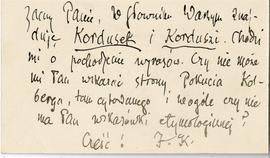 Zacny Panie, w Słowniku Waszym znaj-
duję Kordusek i Korduszi. Chodzi
mi o pochodzenie wyrazów. Czy nie może
mi Pan wskazać strony Pokucia Kol-
berga, tam cytowanego i w ogóle czy nie
ma Pan wskazówki etymologicznej?
Cześć! J. K.